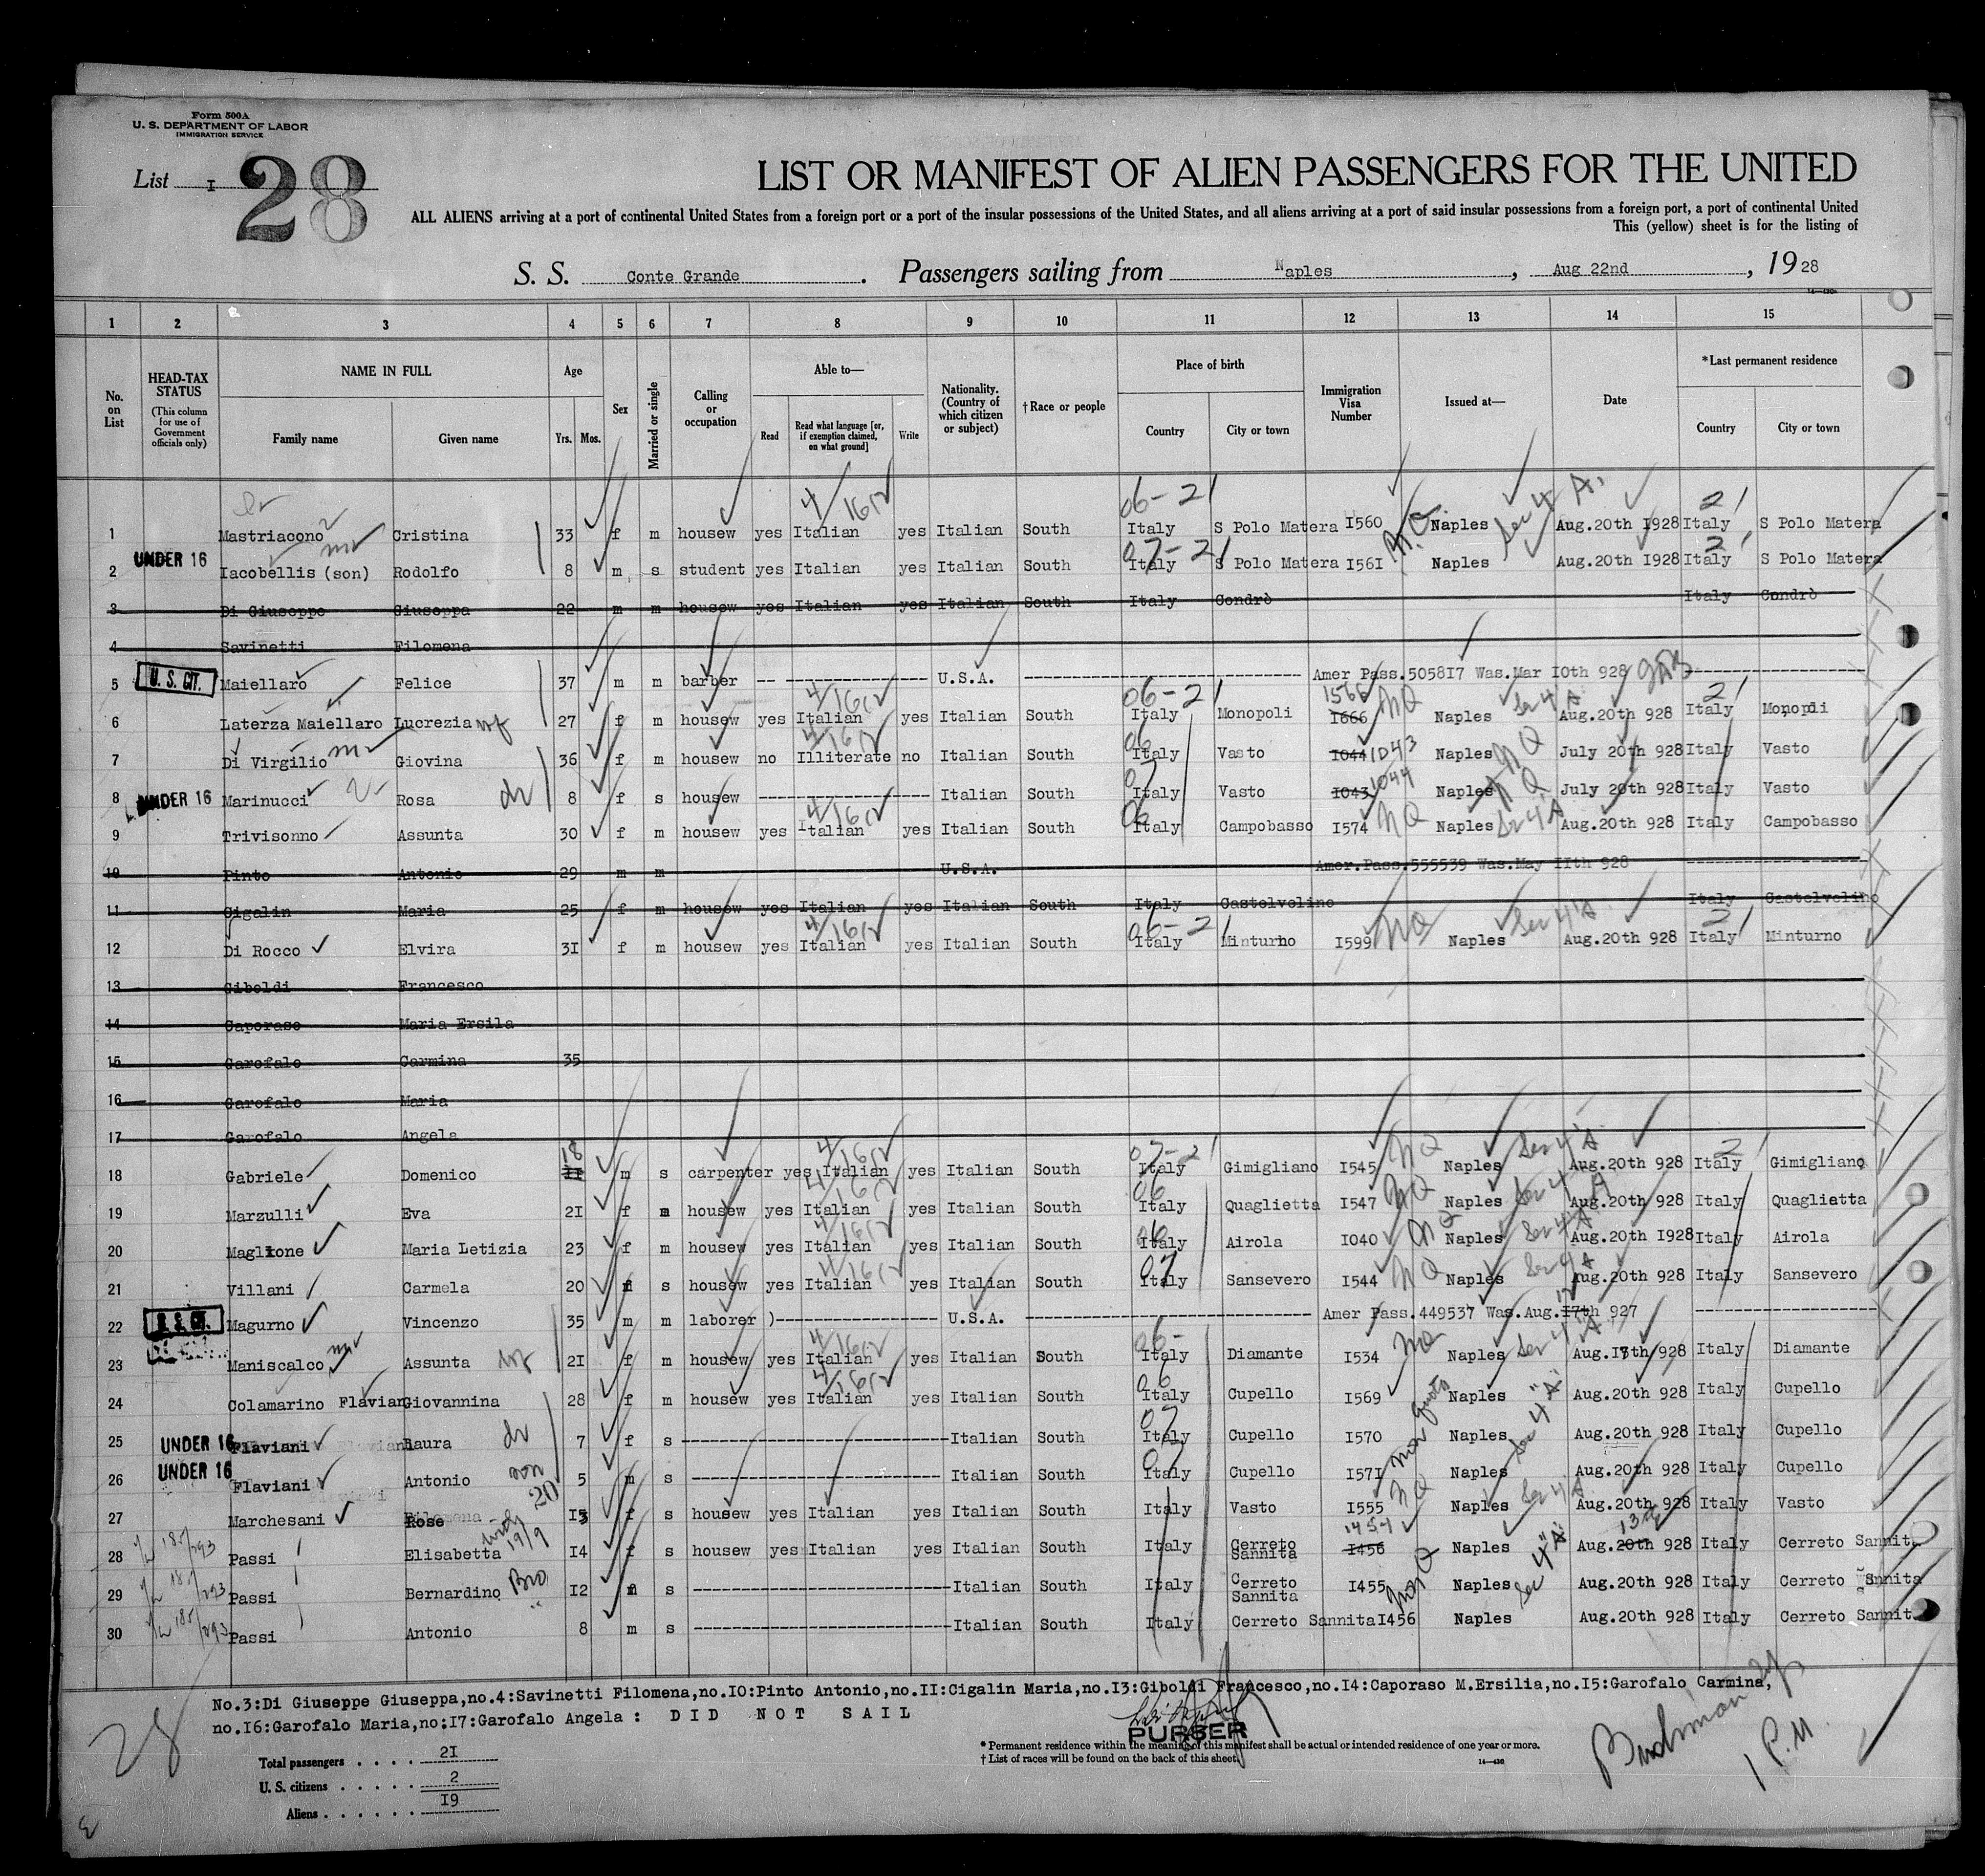 Form 500A
U. S. DEPARTMENT OF LABOR
IMMIGRATION SERVICE
List I 28
LIST OR MANIFEST OF ALIEN PASSENGERS FOR THE UNITED
ALL ALIENS arriving at a port of continental United States from a foreign port or a port of the insular possessions of the United States, and all aliens arriving at a port of said insular possessions from a foreign port, a port of continental United
This (yellow) sheet is for the listing of
S. S. Conte Grande. Passengers sailing from Naples, Aug 22nd, 1928
1 2 3 4 5 6 7 8 9 10 11 12 13 14 15
No. on List
HEAD-TAX STATUS (This column for use of Government officials only)
NAME IN FULL Family name Given name
Age Yrs. Mos.
Sex
Married or single
Calling or occupation
Able to— Read Read what language [or, if exemption claimed, on what ground] Write
Nationality. (Country of which citizen or subject)
†Race or people
Place of birth Country City or town
Immigration Visa Number
Issued at—
Date
*Last permanent residence Country City or town
06-2 4/16/2 2
1 Mastriacono Cristina 33 f m housew yes Italian yes Italian South Italy S Polo Matera I560 N.Q. Naples Sec 4 A. Aug.20th I928 Italy S Polo Matera
UNDER 16 07-2 2
2 Iacobellis (son) Rodolfo 8 m s student yes Italian yes Italian South Italy S Polo Matera I56I Naples Aug.20th I928 Italy S Polo Matera
3 Di Giuseppe Giuseppa 22 m m housew yes Italian yes Italian South Italy Condrò Italy Condrò
4 Savinetti Filomena
5 U. S. CIT. Maiellaro Felice 37 m m barber U.S.A. Amer Pass.5058I7 Was.Mar I0th 928
6 Laterza Maiellaro Lucrezia wf 27 f m housew yes Italian yes Italian South Italy Monopoli I666 1566 NQ Naples Sec 4 A Aug.20th 928 Italy Monopoli
7 Di Virgilio Giovina 36 f m housew no Illiterate no Italian South Italy Vasto I044 1043 Naples NQ July 20th 928 Italy Vasto
8 UNDER 16 Marinucci Rosa dr 8 f s housew Italian South Italy Vasto I043 1044 Naples NQ July 20th 928 Italy Vasto
9 Trivisonno Assunta 30 f m housew yes Italian yes Italian South Italy Campobasso I574 NQ Naples Sec 4 A Aug.20th 928 Italy Campobasso
10 Pinto Antonio 29 m m U.S.A. Amer.Pass.555539 Was.May IIth 928
11 Cigalin Maria 25 f m housew yes Italian yes Italian South Italy Castelvelino Italy Castelvelino
12 Di Rocco Elvira 3I f m housew yes Italian yes Italian South Italy Minturno I599 NQ Naples Sec 4 A Aug.20th 928 Italy Minturno
13 Giboldi Francesco
14 Caporaso Maria Ersila
15 Garofalo Carmina 35
16 Garofalo Maria
17 Garofalo Angela
18 Gabriele Domenico 18 m s carpenter yes Italian yes Italian South Italy Gimigliano I545 NQ Naples Sec 4 A Aug.20th 928 Italy Gimigliano
19 Marzulli Eva 2I f m housew yes Italian yes Italian South Italy Quaglietta I547 NQ Naples Sec 4 A Aug.20th 928 Italy Quaglietta
20 Maglione Maria Letizia 23 f m housew yes Italian yes Italian South Italy Airola I040 NQ Naples Sec 4 A Aug.20th I928 Italy Airola
21 Villani Carmela 20 f s housew yes Italian yes Italian South Italy Sansevero I544 NQ Naples Sec 4 A Aug.20th 928 Italy Sansevero
22 U. S. CIT. Magurno Vincenzo 35 m m laborer U.S.A. Amer Pass.449537 Was.Aug.I7th 927
23 Maniscalco Assunta wf 2I f m housew yes Italian yes Italian South Italy Diamante I534 NQ Naples Sec 4 A Aug.I8th 928 Italy Diamante
24 Colamarino Flavian Giovannina 28 f m housew yes Italian yes Italian South Italy Cupello I569 Naples Aug.20th 928 Italy Cupello
25 UNDER 16 Flaviani Laura dr 7 f s Italian South Italy Cupello I570 Non Quota Naples Sec 4 "A" Aug.20th 928 Italy Cupello
26 UNDER 16 Flaviani Antonio son 5 m s Italian South Italy Cupello I57I Naples Aug.20th 928 Italy Cupello
27 Marchesani Rose 20 I5 f s housew yes Italian yes Italian South Italy Vasto I555 NQ Naples Sec 4 A Aug.20th 928 Italy Vasto
28 Passi Elisabetta I4 f s housew yes Italian yes Italian South Italy Cerreto Sannita I456 1454 Naples Aug.20th 13th 928 Italy Cerreto Sannita
29 Passi Bernardino Bro I2 m s Italian South Italy Cerreto Sannita I455 Non Q Naples Sec 4 "A" Aug.20th 928 Italy Cerreto Sannita
30 Passi Antonio " 8 m s Italian South Italy Cerreto Sannita I456 Naples Aug.20th 928 Italy Cerreto Sannita
No.3:Di Giuseppe Giuseppa,no.4:Savinetti Filomena,no.I0:Pinto Antonio,no.II:Cigalin Maria,no.I3:Giboldi Francesco,no.I4:Caporaso M.Ersilia,no.I5:Garofalo Carmina,
no.I6:Garofalo Maria,no:I7:Garofalo Angela : DID NOT SAIL
PURSER
28
Total passengers . . . . 2I
U. S. citizens . . . . . 2
Aliens . . . . . . I9
* Permanent residence within the meaning of this manifest shall be actual or intended residence of one year or more.
† List of races will be found on the back of this sheet.
14—430
1 P.M.